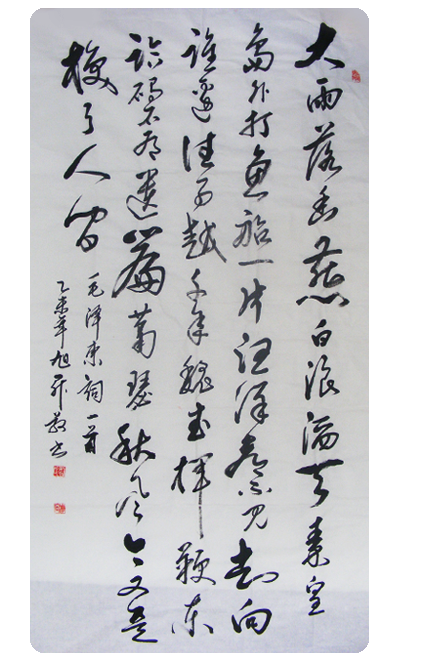 大雨落幽燕白浪滔天秦皇
岛外打鱼船一片汪洋都不见知向
谁边往事越千年魏武挥鞭东
临碣石有遗篇萧瑟秋风今又是
换了人间
毛泽东词一首
乙未年旭升敬书